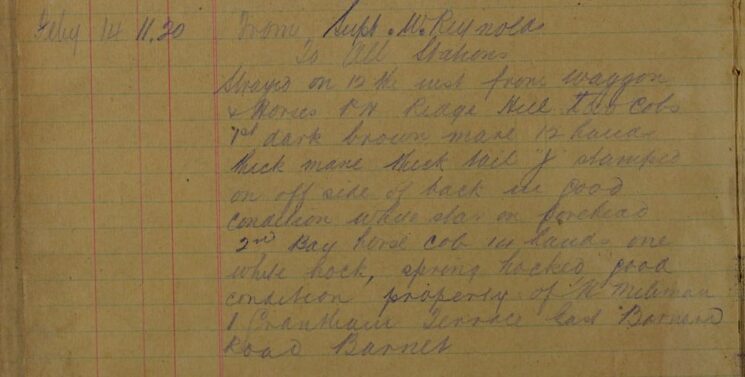 Feby 14 11.20 From Supt. McReynolds
To All Stations
Strayed on 12th inst from Waggon
& Horses P H Ridge Hill Two Cobs
1st dark brown mare 12 hands
thick mane thick tail J stamped
on off side of back in good
condition white star on forehead
2nd Bay horse cob hands one
white hock, spring hocked good
condition property of
1 Grantham Terrace East Barnard
Road Barnet